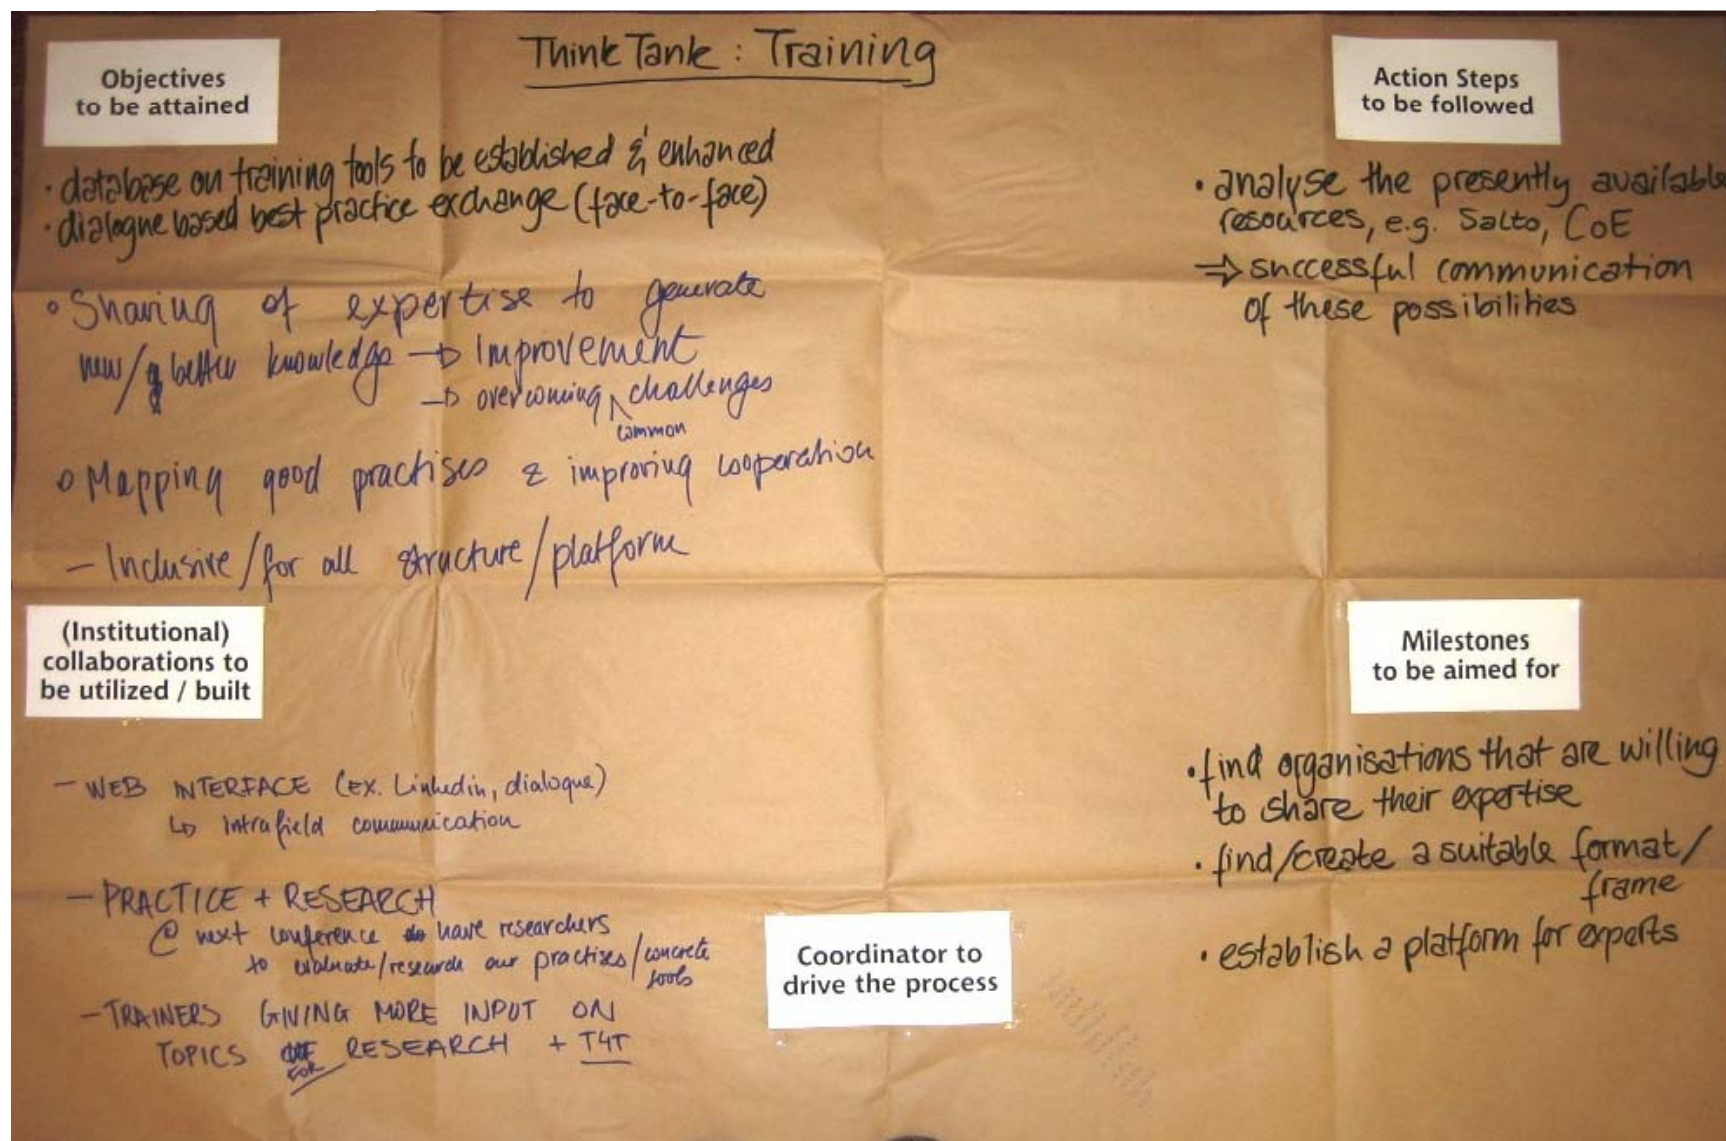 Think Tank : Training
Objectives
to be attained
· database on training tools to be established & enhanced
· dialogue based best practice exchange (face-to-face)
° Sharing of expertise to generate
new/ better knowledge → Improvement
→ overcoming ^ challenges
common
° Mapping good practises & improving cooperation
– Inclusive/for all structure/platform
(Institutional)
collaborations to
be utilized / built
– WEB INTERFACE (ex. Linkedin, dialogue)
↳ Intrafield communication
– PRACTICE + RESEARCH
@ next conference have researchers
to evaluate/research our practises/concrete
tools
– TRAINERS GIVING MORE INPUT ON
TOPICS FOR RESEARCH + T4T
Coordinator to
drive the process
Action Steps
to be followed
· analyse the presently available
resources, e.g. Salto, CoE
⇒ successful communication
of these possibilities
Milestones
to be aimed for
· find organisations that are willing
to share their expertise
· find/create a suitable format/
frame
· establish a platform for experts